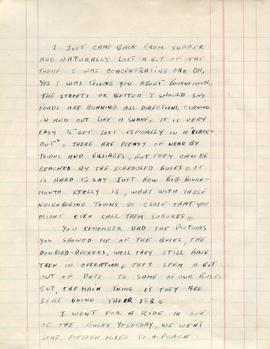 I JUST CAME BACK FROM SUPPER
AND NATURALLY LOST A BIT OF THE
THEME I WAS CONCENTRATING ONE ON,
YES I WAS TELLING YOU ABOUT BOURNEMOUTH,
THE STREETS OR BETTER I SHOULD SAY
ROADS ARE RUNNING ALL DIRECTIONS, CURVING
IN AND OUT LIKE A SNAKE, IT IS VERY
EASY TO GET LOST ESPECIALLY IN A "BLACK-
OUT". THERE ARE PLENTY OF NEAR BY
TOWNS AND VILLAGES, BUT THEY CAN BE
REACHED BY THE SCHEDULED BUSES. IT
IS HARD TO SAY JUST HOW BIG BOURNE-
MOUTH REALLY IS, WHAT WITH THESE
NEIGHBORING TOWNS SO CLOSE THAT YOU
MIGHT EVEN CALL THEM SUBURBS.
YOU REMEMBER DAD THE PICTURES
YOU SHOWED ME OF THE BUSES, THE
DOUBLED-DECKERS, WELL THEY STILL HAVE
THEM IN OPERATION, THEY SEEM A BIT
OUT OF DATE TO SOME OF OUR BUSES
BUT, THE MAIN THING IS THEY ARE
STILL DOING THEIR JOB.
I WENT FOR A RIDE IN ONE
OF THE BUSES YESTERDAY, WE WENT
SOME FIFTEEN MILES TO A PLACE